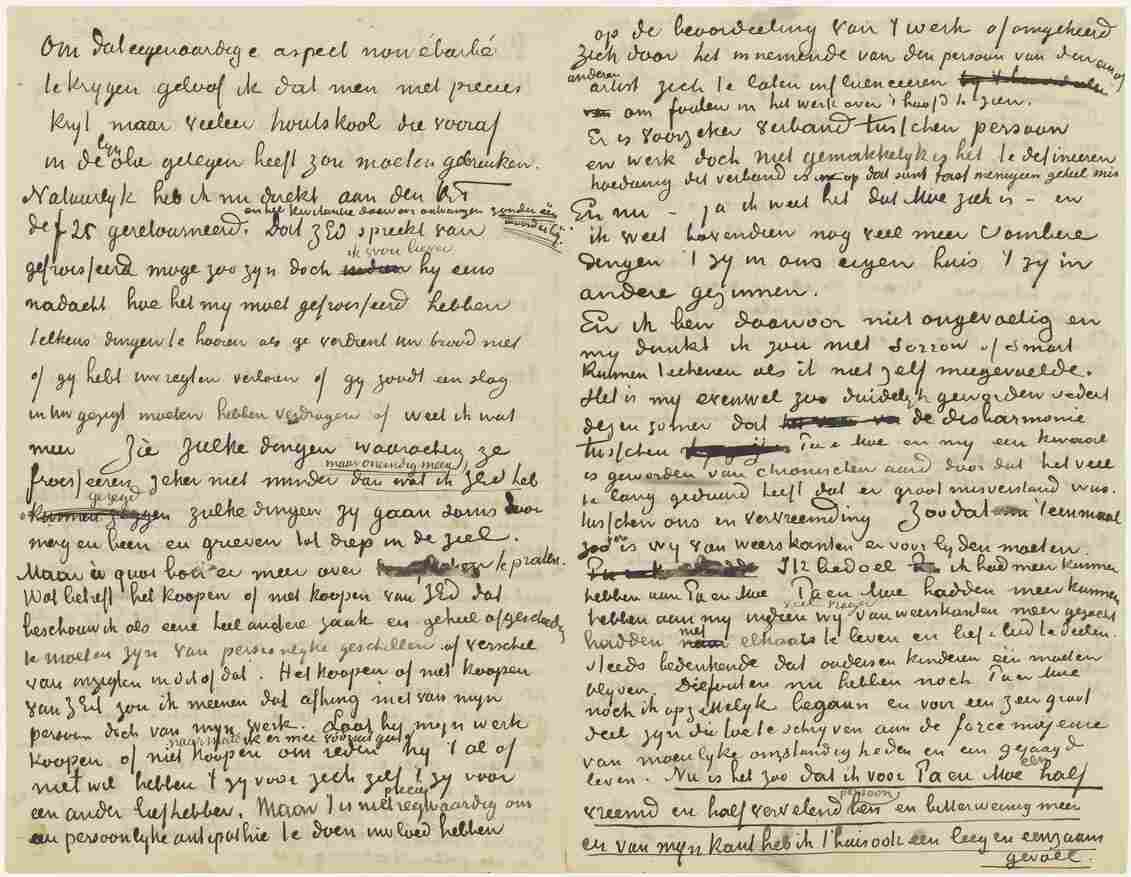 Om dat eigenaardige aspect non ébarbé
te krygen geloof ik dat men niet precies
kryt maar veeleer houtskool die vooraf
in de lyn olie gelegen heeft zou moeten gebruiken.
Natuurlyk heb ik nu direkt aan den
de f 25 geretourneerd. Dat ZEd spreekt van
en het kwitantie daarvoor ontvangen zonder één woord er by.
ik svou liever
gefroisseerd moge zoo zyn doch indien hy eens
nadacht hoe het my moet gefroisseerd hebben
telkens dingen te hooren als ge verdient uw brood niet
of gy hebt uw regten verloren of gy zoudt een slag
in uw gezigt moeten hebben verdragen of weet ik wat
meer Zie zulke dingen waarachtig ze
froisseeren zeker niet minder dan wat ik ZEd heb
maar oneindig meer
gezegd
zulke dingen zy gaan soms door
merg en been en grieven tot diep in de ziel.
Maar à quoi bon er meer over te praten.
Wat betreft het koopen of niet koopen van ZEd dat
beschouw ik als eene heel andere zaak en geheel afgescheiden
te moeten zyn van persoonlyke geschillen of verschil
van inzigten in dit of dat. Het koopen of niet koopen
van ZEd zou ik meenen dat afhing niet van myn
persoon doch van myn werk. Laat hy myn werk
naarmate ik er mee vooruit ga
koopen of niet koopen om reden hy 't al of
niet wil hebben 't zy voor zich zelf 't zy voor
een ander liefhebber. Maar 't is niet precies regtvaardig om
een persoonlyke antipathie te doen invloed hebben
op de beoordeeling van 't werk of omgekeerd
zich door het innemende van den persoon van den een of
anderen artist zich te laten influenceeren
om fouten in het werk over 't hoofd te zien.
Er is voorzeker verband tusschen persoon
en werk doch niet gemakkelyk is het te definieeren
hoedanig dit verband is en op dat punt tast menigeen geheel mis
En nu – ja ik weet het dat Moe ziek is – en
ik weet bovendien nog veel meer sombere
dingen 't zy in ons eigen huis 't zy in
andere gezinnen.
En ik ben daarvoor niet ongevoelig en
my dunkt ik zou niet Sorrow of Smart
kunnen teekenen als ik niet zelf meegevoelde.
Het is my evenwel zoo duidelyk geworden sedert
dezen zomer dat de disharmonie
tusschen Pa en Moe en my een kwaal
is geworden van chronischen aard door dat het veel
te lang geduurd heeft dat er groot misverstand was
tusschen ons en vervreemding Zoodat 't eenmaal
zoo ver is wy van weerskanten er voor lyden moeten.
Ik bedoel ik had meer kunnen
hebben aan Pa en Moe Pa en Moe hadden meer kunnen
veel vroeger
hebben aan my indien wy van weerskanten meer gezocht
hadden met elkaar te leven en lief & leed te deelen.
steeds bedenkende dat ouders en kinderen één moeten
blyven. Die fouten nu hebben noch Pa en Moe
noch ik opzettelyk begaan en voor een zeer groot
deel zyn die toe te schryven aan de force majeure
van moeielyke omstandigheden en een gejaagd
leven. Nu is het zoo dat ik voor Pa en Moe een half
vreemd en half vervelend persoon ben en bitter weinig meer
en van myn kant heb ik t'huis ook een leeg en eenzaam
gevoel.